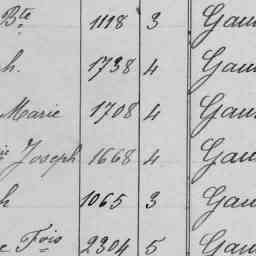 Bte 1118 3 Gau
h. 1738 4 Gau
Marie 1708 4 Gau
Joseph 1668 4 Gau
h 1065 3 Gau
Fois 2304 5 Gau